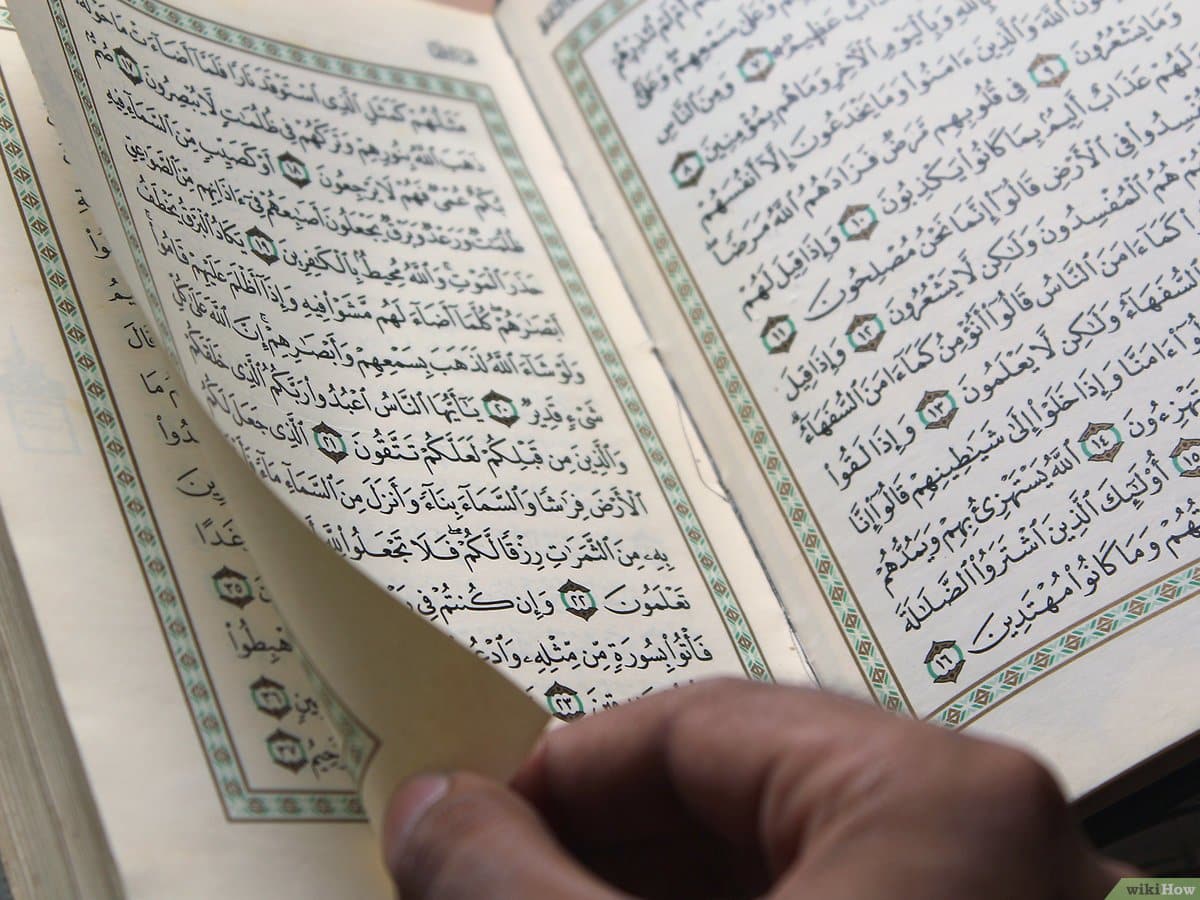 أَمْ لَمْ تُنذِرْهُمْ
وَعَلَىٰ سَمْعِهِمْ وَعَلَىٰ
عَذَابٌ عَظِيمٌ ٧ وَمِنَ ٱلنَّاسِ
بِٱللَّهِ وَبِٱلْيَوْمِ ٱلْءَاخِرِ وَمَا هُم بِمُؤْمِنِينَ ٨
ٱللَّهَ وَٱلَّذِينَ ءَامَنُوا۟ وَمَا يَخْدَعُونَ إِلَّآ أَنفُسَهُمْ
وَمَا يَشْعُرُونَ ٩ فِى قُلُوبِهِم مَّرَضٌ فَزَادَهُمُ ٱللَّهُ مَرَضًا
وَلَهُمْ عَذَابٌ أَلِيمٌۢ بِمَا كَانُوا۟ يَكْذِبُونَ ١٠ وَإِذَا قِيلَ لَهُمْ
فِى ٱلْأَرْضِ قَالُوٓا۟ إِنَّمَا نَحْنُ مُصْلِحُونَ ١١
هُمُ ٱلْمُفْسِدُونَ وَلَٰكِن لَّا يَشْعُرُونَ ١٢ وَإِذَا قِيلَ
كَمَآ ءَامَنَ ٱلنَّاسُ قَالُوٓا۟ أَنُؤْمِنُ كَمَآ ءَامَنَ ٱلسُّفَهَآءُ
ٱلسُّفَهَآءُ وَلَٰكِن لَّا يَعْلَمُونَ ١٣ وَإِذَا لَقُوا۟
ءَامَنَّا وَإِذَا خَلَوْا۟ إِلَىٰ شَيَٰطِينِهِمْ قَالُوٓا۟ إِنَّا
١٤ ٱللَّهُ يَسْتَهْزِئُ بِهِمْ وَيَمُدُّهُمْ
١٥ أُو۟لَٰٓئِكَ ٱلَّذِينَ ٱشْتَرَوُا۟ ٱلضَّلَٰلَةَ
وَمَا كَانُوا۟ مُهْتَدِينَ ١٦
مَثَلُهُمْ كَمَثَلِ ٱلَّذِى ٱسْتَوْقَدَ نَارًا فَلَمَّآ أَضَآءَتْ مَا حَوْلَهُۥ
ذَهَبَ ٱللَّهُ بِنُورِهِمْ وَتَرَكَهُمْ فِى ظُلُمَٰتٍ لَّا يُبْصِرُونَ ١٧ صُمٌّۢ
بُكْمٌ عُمْىٌ فَهُمْ لَا يَرْجِعُونَ ١٨ أَوْ كَصَيِّبٍ مِّنَ ٱلسَّمَآءِ فِيهِ
ظُلُمَٰتٌ وَرَعْدٌ وَبَرْقٌ يَجْعَلُونَ أَصَٰبِعَهُمْ فِىٓ ءَاذَانِهِم مِّنَ ٱلصَّوَٰعِقِ
حَذَرَ ٱلْمَوْتِ وَٱللَّهُ مُحِيطٌۢ بِٱلْكَٰفِرِينَ ١٩ يَكَادُ ٱلْبَرْقُ يَخْطَفُ
أَبْصَٰرَهُمْ كُلَّمَآ أَضَآءَ لَهُم مَّشَوْا۟ فِيهِ وَإِذَآ أَظْلَمَ عَلَيْهِمْ قَامُوا۟
وَلَوْ شَآءَ ٱللَّهُ لَذَهَبَ بِسَمْعِهِمْ وَأَبْصَٰرِهِمْ إِنَّ ٱللَّهَ عَلَىٰ كُلِّ
شَىْءٍ قَدِيرٌ ٢٠ يَٰٓأَيُّهَا ٱلنَّاسُ ٱعْبُدُوا۟ رَبَّكُمُ ٱلَّذِى خَلَقَكُمْ
وَٱلَّذِينَ مِن قَبْلِكُمْ لَعَلَّكُمْ تَتَّقُونَ ٢١ ٱلَّذِى جَعَلَ لَكُمُ
ٱلْأَرْضَ فِرَٰشًا وَٱلسَّمَآءَ بِنَآءً وَأَنزَلَ مِنَ ٱلسَّمَآءِ مَآءً
بِهِۦ مِنَ ٱلثَّمَرَٰتِ رِزْقًا لَّكُمْ فَلَا تَجْعَلُوا۟
تَعْلَمُونَ ٢٢ وَإِن كُنتُمْ فِى
فَأْتُوا۟ بِسُورَةٍ مِّن مِّثْلِهِۦ
٢٣
قَالَ
مَا
٣٥
٣٦
٣٧
wikiHow